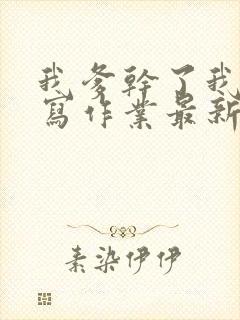 我爹幹了我
寫作業最新
素染伊伊